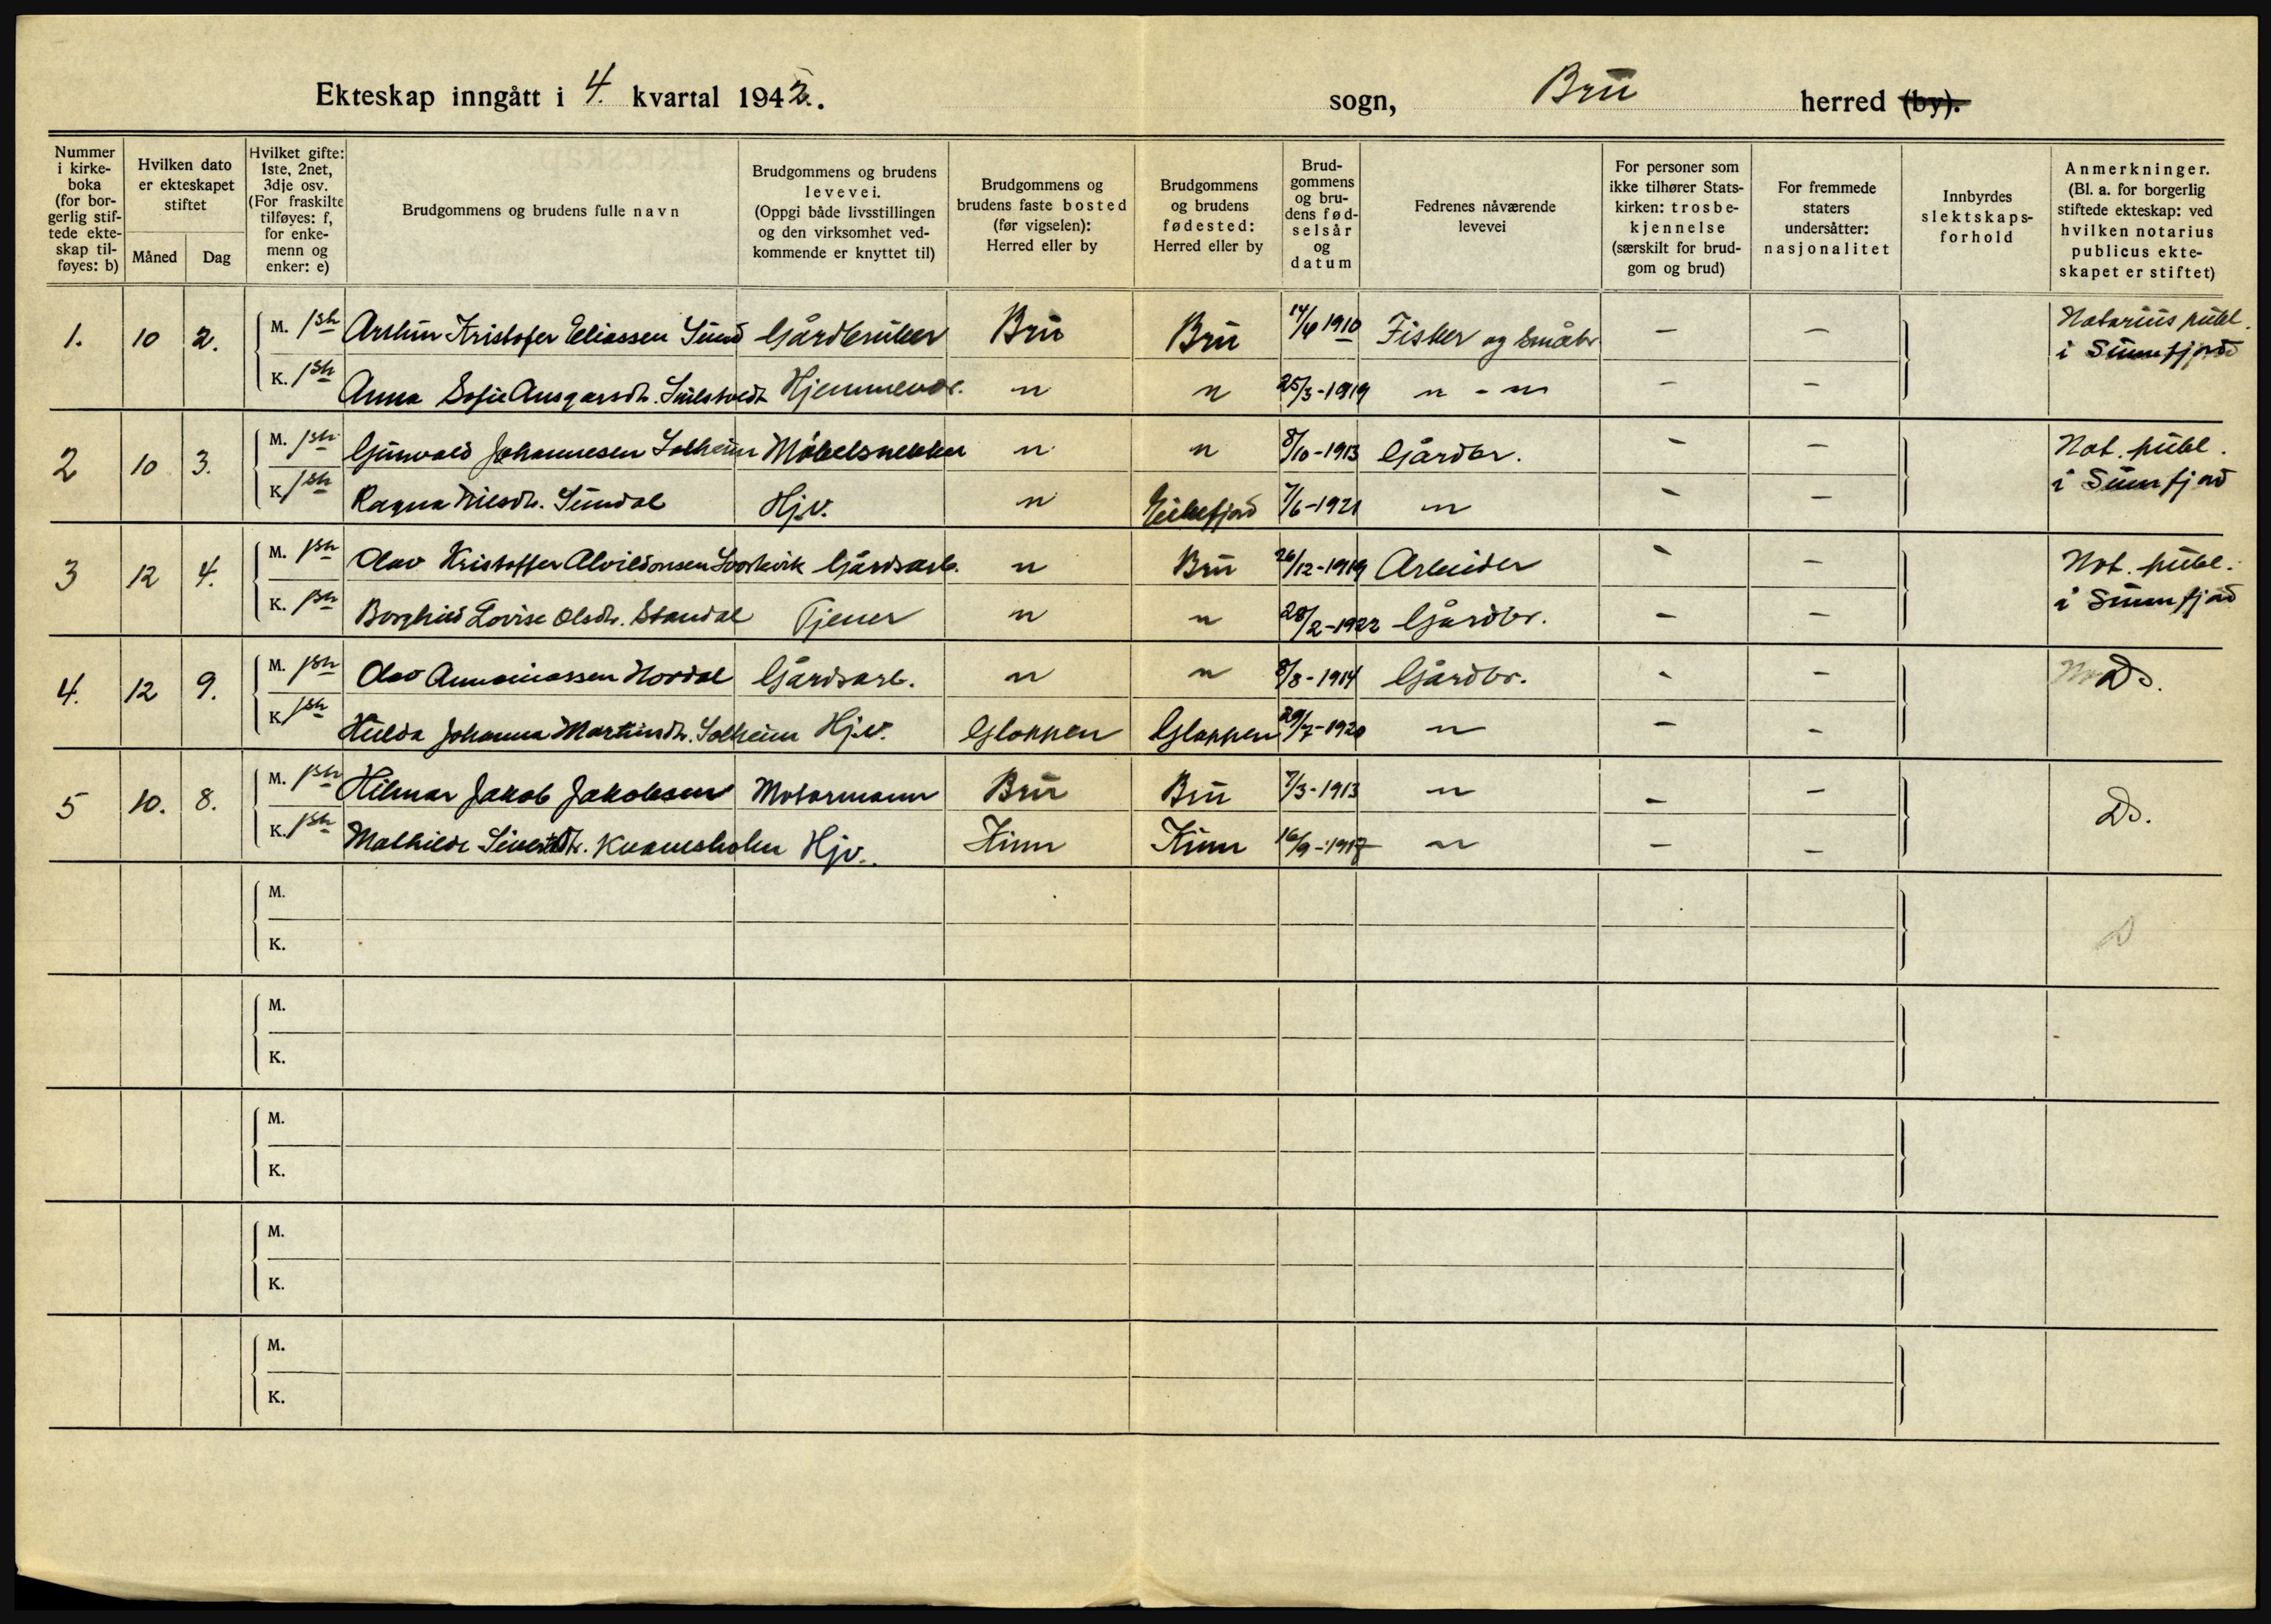 Ekteskap inngått i 4. kvartal 1942. sogn, Brū herred (by).
Nummer i kirkeboka (for borgerlig stiftede ekteskap tilføyes: b)
Hvilken dato er ekteskapet stiftet
Måned
Dag
Hvilket gifte: 1ste, 2net, 3dje osv. (For fraskilte tilføyes: f, for enkemenn og enker: e)
Brudgommens og brudens fulle navn
Brudgommens og brudens levevei. (Oppgi både livsstillingen og den virksomhet vedkommende er knyttet til)
Brudgommens og brudens faste bosted (før vigselen): Herred eller by
Brudgommens og brudens fødested: Herred eller by
Brudgommens og brudens fødselsår og datum
Fedrenes nåværende levevei
For personer som ikke tilhører Statskirken: trosbekjennelse (særskilt for brudgom og brud)
For fremmede staters undersåtter: nasjonalitet
Innbyrdes slektskapsforhold
Anmerkninger. (Bl. a. for borgerlig stiftede ekteskap: ved hvilken notarius publicus ekteskapet er stiftet)
1. 10 2. M. 1ste Arthūr Kristofer Eliassen Sūnd Gårdbrūker Brū Brū 14/4 1910 Fisker og småbr. — — Notariūs pūbl. i Sūnnfjord
K. 1ste Anna Sofie Ansgarsdtr. Hjemmevær. " " 25/3-1919 " - " — —
2 10 3. M. 1ste Gūnvald Johannesen Solheim Møbelsnekker " " 8/10-1913 Gårdbr. — — Not. pūbl. i Sūnnfjord
K. 1ste Ragna Nilsdtr. Sūndal Hjv. " Eikefjord 7/6-1921 " — —
3 12 4. M. 1ste Olav Kristoffer Alvildonsen Gårdsarb. " Brū 26/12-1919 Arbeider — — Not. pūbl. i Sūnnfjord
K. 1ste Borghild Lovise Olsdtr. Standal Tjener " " 28/2-1922 Gårdbr. — —
4. 12 9. M. 1ste Olav Annaniassen Hordal Gårdsarb. " " 8/8-1914 Gårdbr. — — Do.
K. 1ste Hūlda Johanna Martinsdtr. Solheim Hjv. Gloppen Gloppen 29/7-1920 " — —
5 10. 8. M. 1ste Hilmar Jakob Jakobsen Motormann Brū Brū 7/3-1913 " — — Do.
K. 1ste Mathilde Sivertsdtr. Kvamsholm Hjv. Kinn Kinn 16/9-1917 " — —
M.
K.
M.
K.
M.
K.
M.
K.
M.
K.